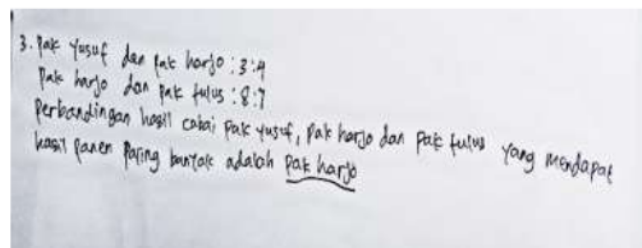 3. Pak Yusuf dan pak harjo : 3:4
Pak harjo dan pak tulus : 8:7
Perbandingan hasil cabai pak yusuf, pak harjo dan pak tulus yang mendapat
hasil panen paling banyak adalah pak harjo